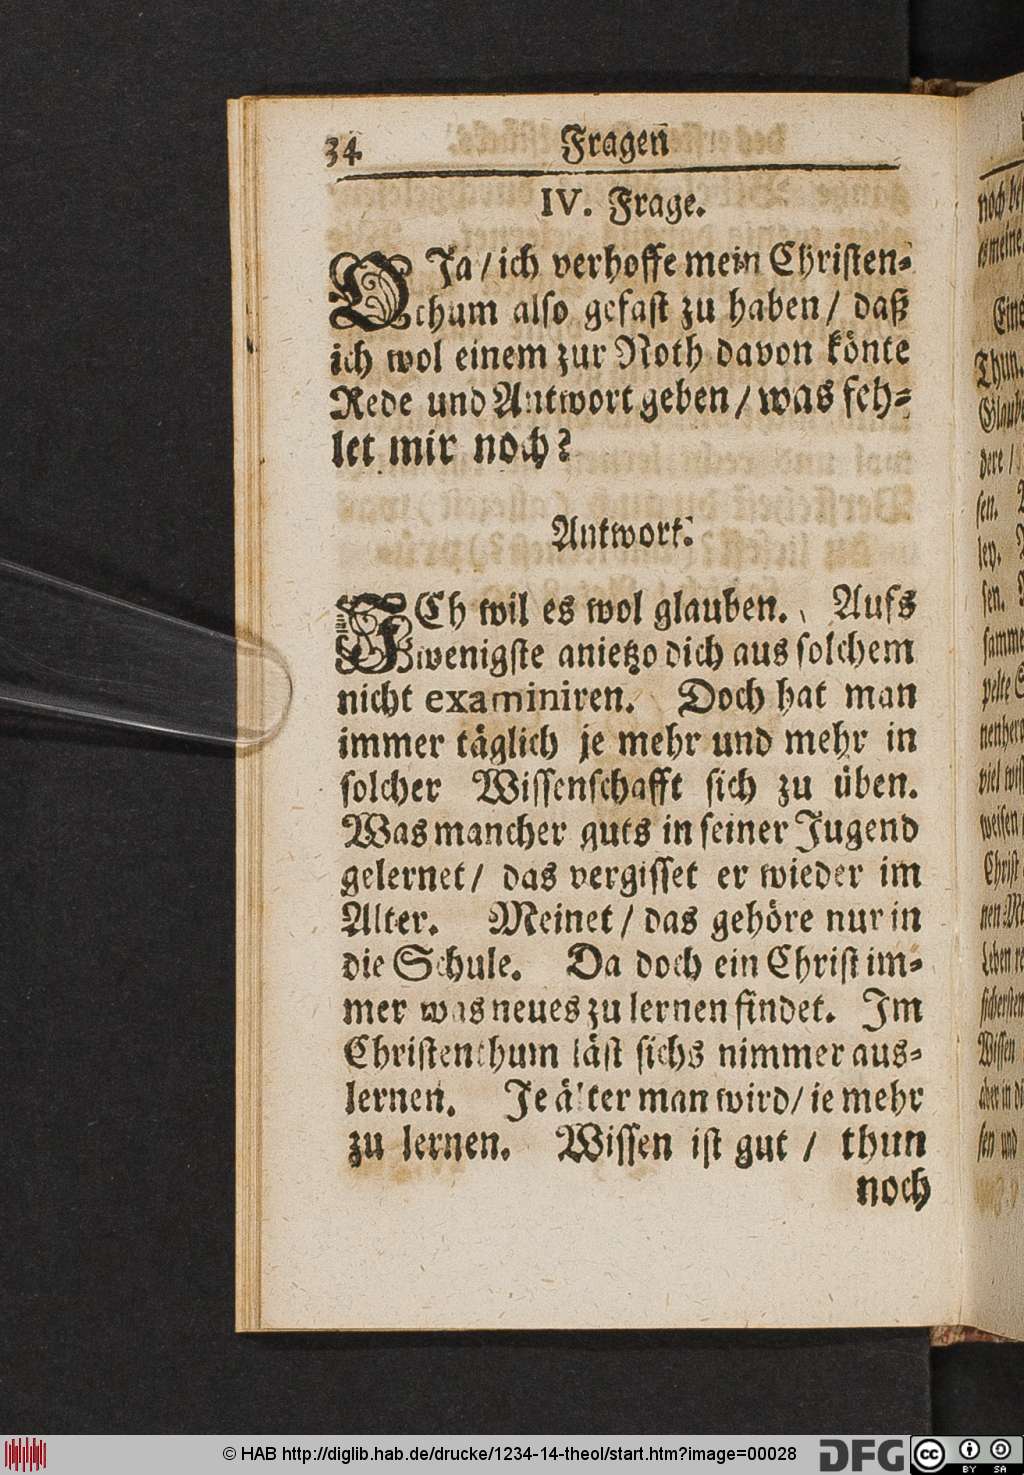 34. Fragen
IV. Frage.
O Ja / ich verhoffe mein Christen-
thum also gefast zu haben / daß
ich wol einem zur Noth davon könte
Rede und Antwort geben / was feh-
let mir noch?
Antwort.
ICh wil es wol glauben. Aufs
wenigste anietzo dich aus solchem
nicht examiniren. Doch hat man
immer täglich je mehr und mehr in
solcher Wissenschafft sich zu üben.
Was mancher guts in seiner Jugend
gelernet / das vergisset er wieder im
Alter. Meinet / das gehöre nur in
die Schule. Da doch ein Christ im-
mer was neues zu lernen findet. Im
Christenthum läst sichs nimmer aus-
lernen. Je älter man wird / ie mehr
zu lernen. Wissen ist gut / thun
noch
noch
Eine
Thun.
dere /
sen.
ley.
sen.
viel
weisen
Christ
Leben
Wissen
sen und
© HAB http://diglib.hab.de/drucke/1234-14-theol/start.htm?image=00028
DFG
cc BY SA